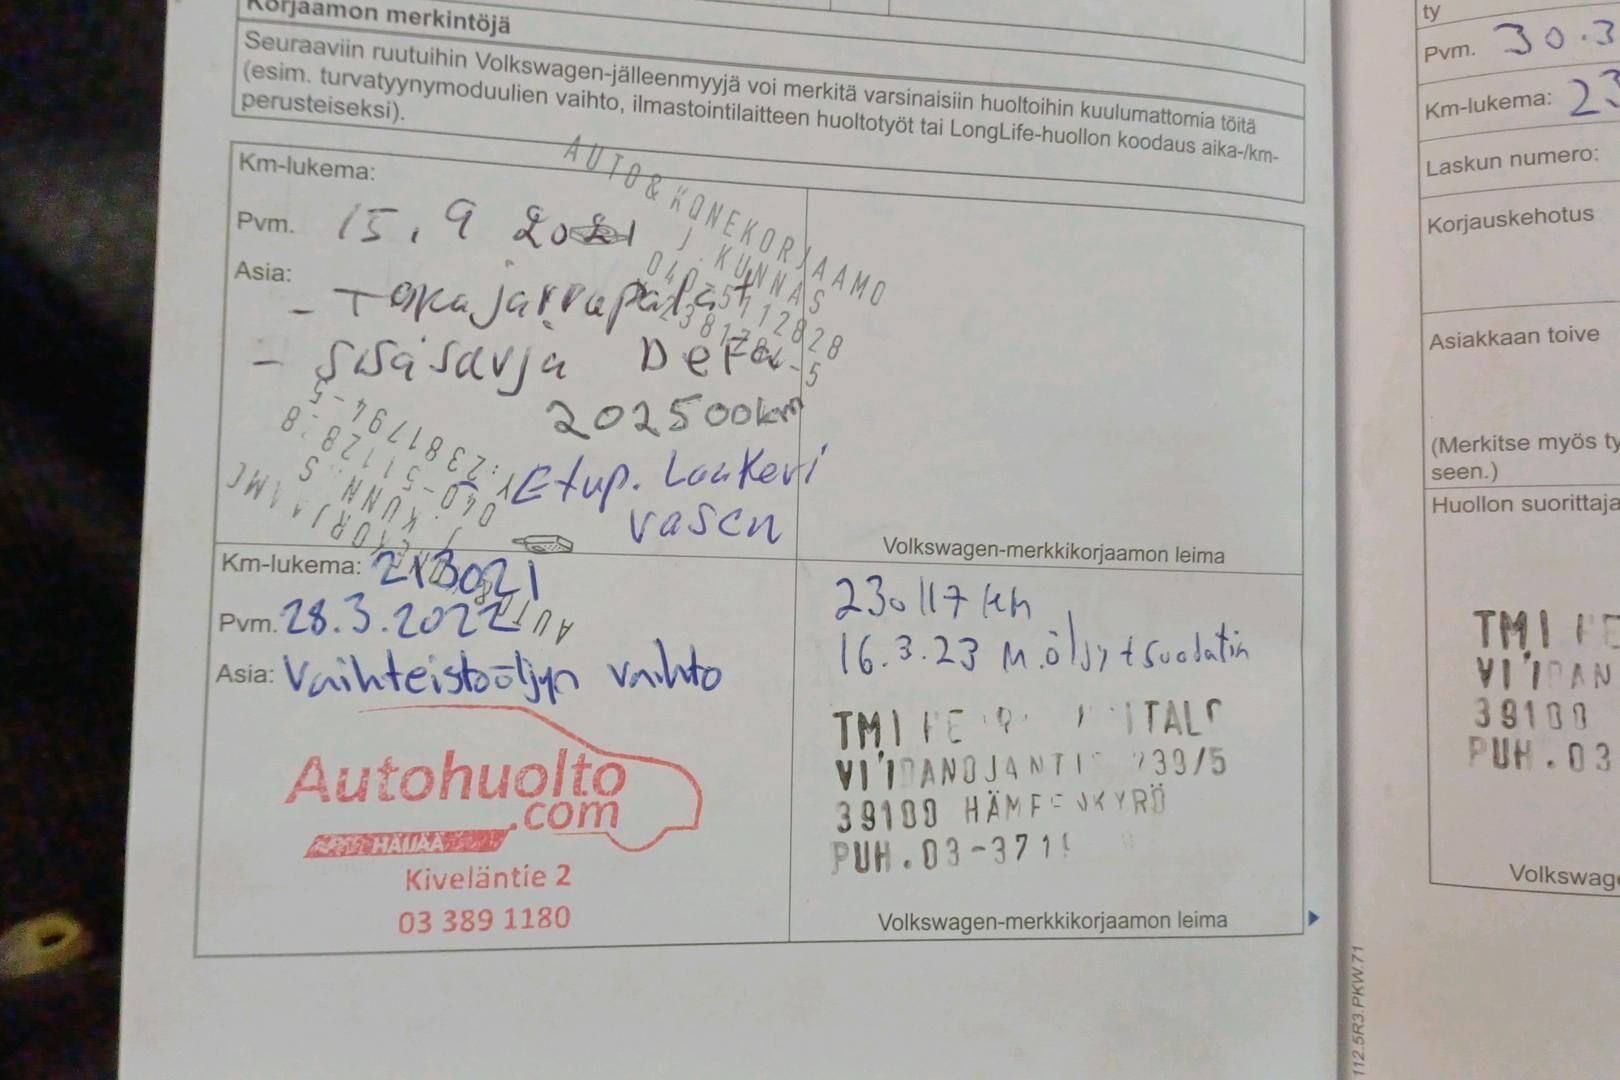 Korjaamon merkintöjä
Seuraaviin ruutuihin Volkswagen-jälleenmyyjä voi merkitä varsinaisiin huoltoihin kuulumattomia töitä
(esim. turvatyynymoduulien vaihto, ilmastointilaitteen huoltotyöt tai LongLife-huollon koodaus aika-/km-
perusteiseksi).
Km-lukema:
Pvm. 15.9 2021
Asia:
- Takajarrupalat
- Sisäsarja Defa
202500km
Etup. Laakeri
vasen
AUTO & KONEKORJAAMO
J. KUNNAS
040-5112828
Volkswagen-merkkikorjaamon leima
Km-lukema: 213021
Pvm. 28.3.2022
Asia: Vaihteistoöljyn vaihto
Autohuolto
.com
Kiveläntie 2
03 389 1180
230117 km
16.3.23 M.öljy + suodatin
TMI
39100
PUH. 03-371
Volkswagen-merkkikorjaamon leima
112.5R3.PKW.71
ty
Pvm. 30.3
Km-lukema: 23
Laskun numero:
Korjauskehotus
Asiakkaan toive
(Merkitse myös ty
seen.)
Huollon suorittaja
TMI
39100
PUH. 03
Volkswag